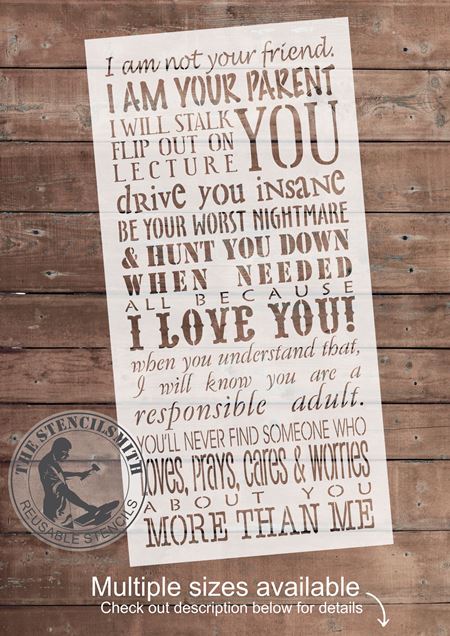 I am not your friend.
I AM YOUR PARENT
I WILL STALK
FLIP OUT ON
LECTURE
YOU
drive you insane
BE YOUR WORST NIGHTMARE
& HUNT YOU DOWN
WHEN NEEDED
ALL BECAUSE
I LOVE YOU!
when you understand that,
I will know you are a
responsible adult.
YOU'LL NEVER FIND SOMEONE WHO
loves, prays, cares & worries
ABOUT YOU
MORE THAN ME
THE STENCILSMITH
REUSABLE STENCILS
Multiple sizes available
Check out description below for details